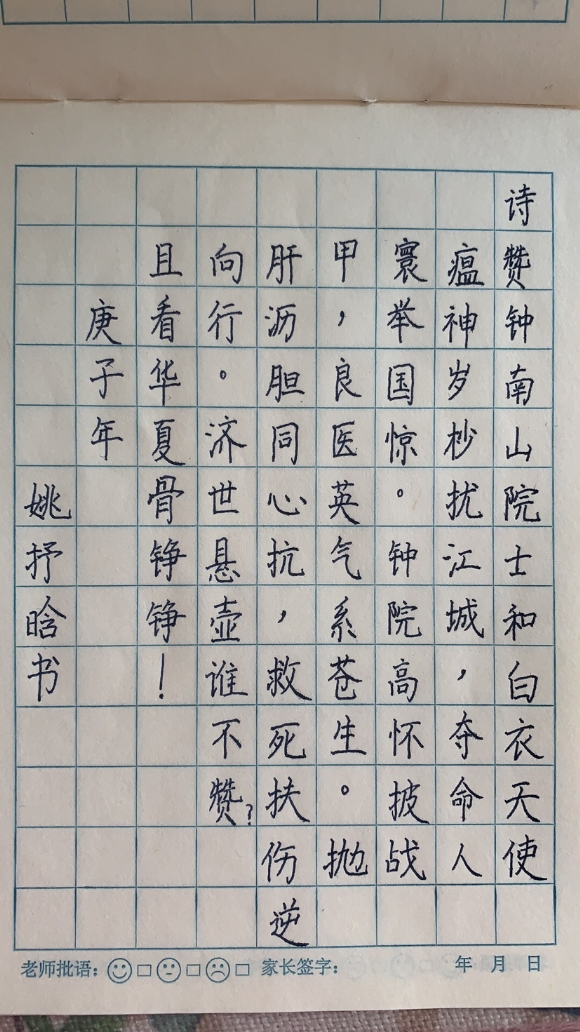 诗赞钟南山院士和白衣天使
瘟神岁杪扰江城，夺命人
寰举国惊。钟院高怀披战
甲，良医英气系苍生。抛
肝沥胆同心抗，救死扶伤逆
向行。济世悬壶谁不赞？
且看华夏骨铮铮！
庚子年
姚抒晗书
老师批语：□□□ 家长签字： 年 月 日